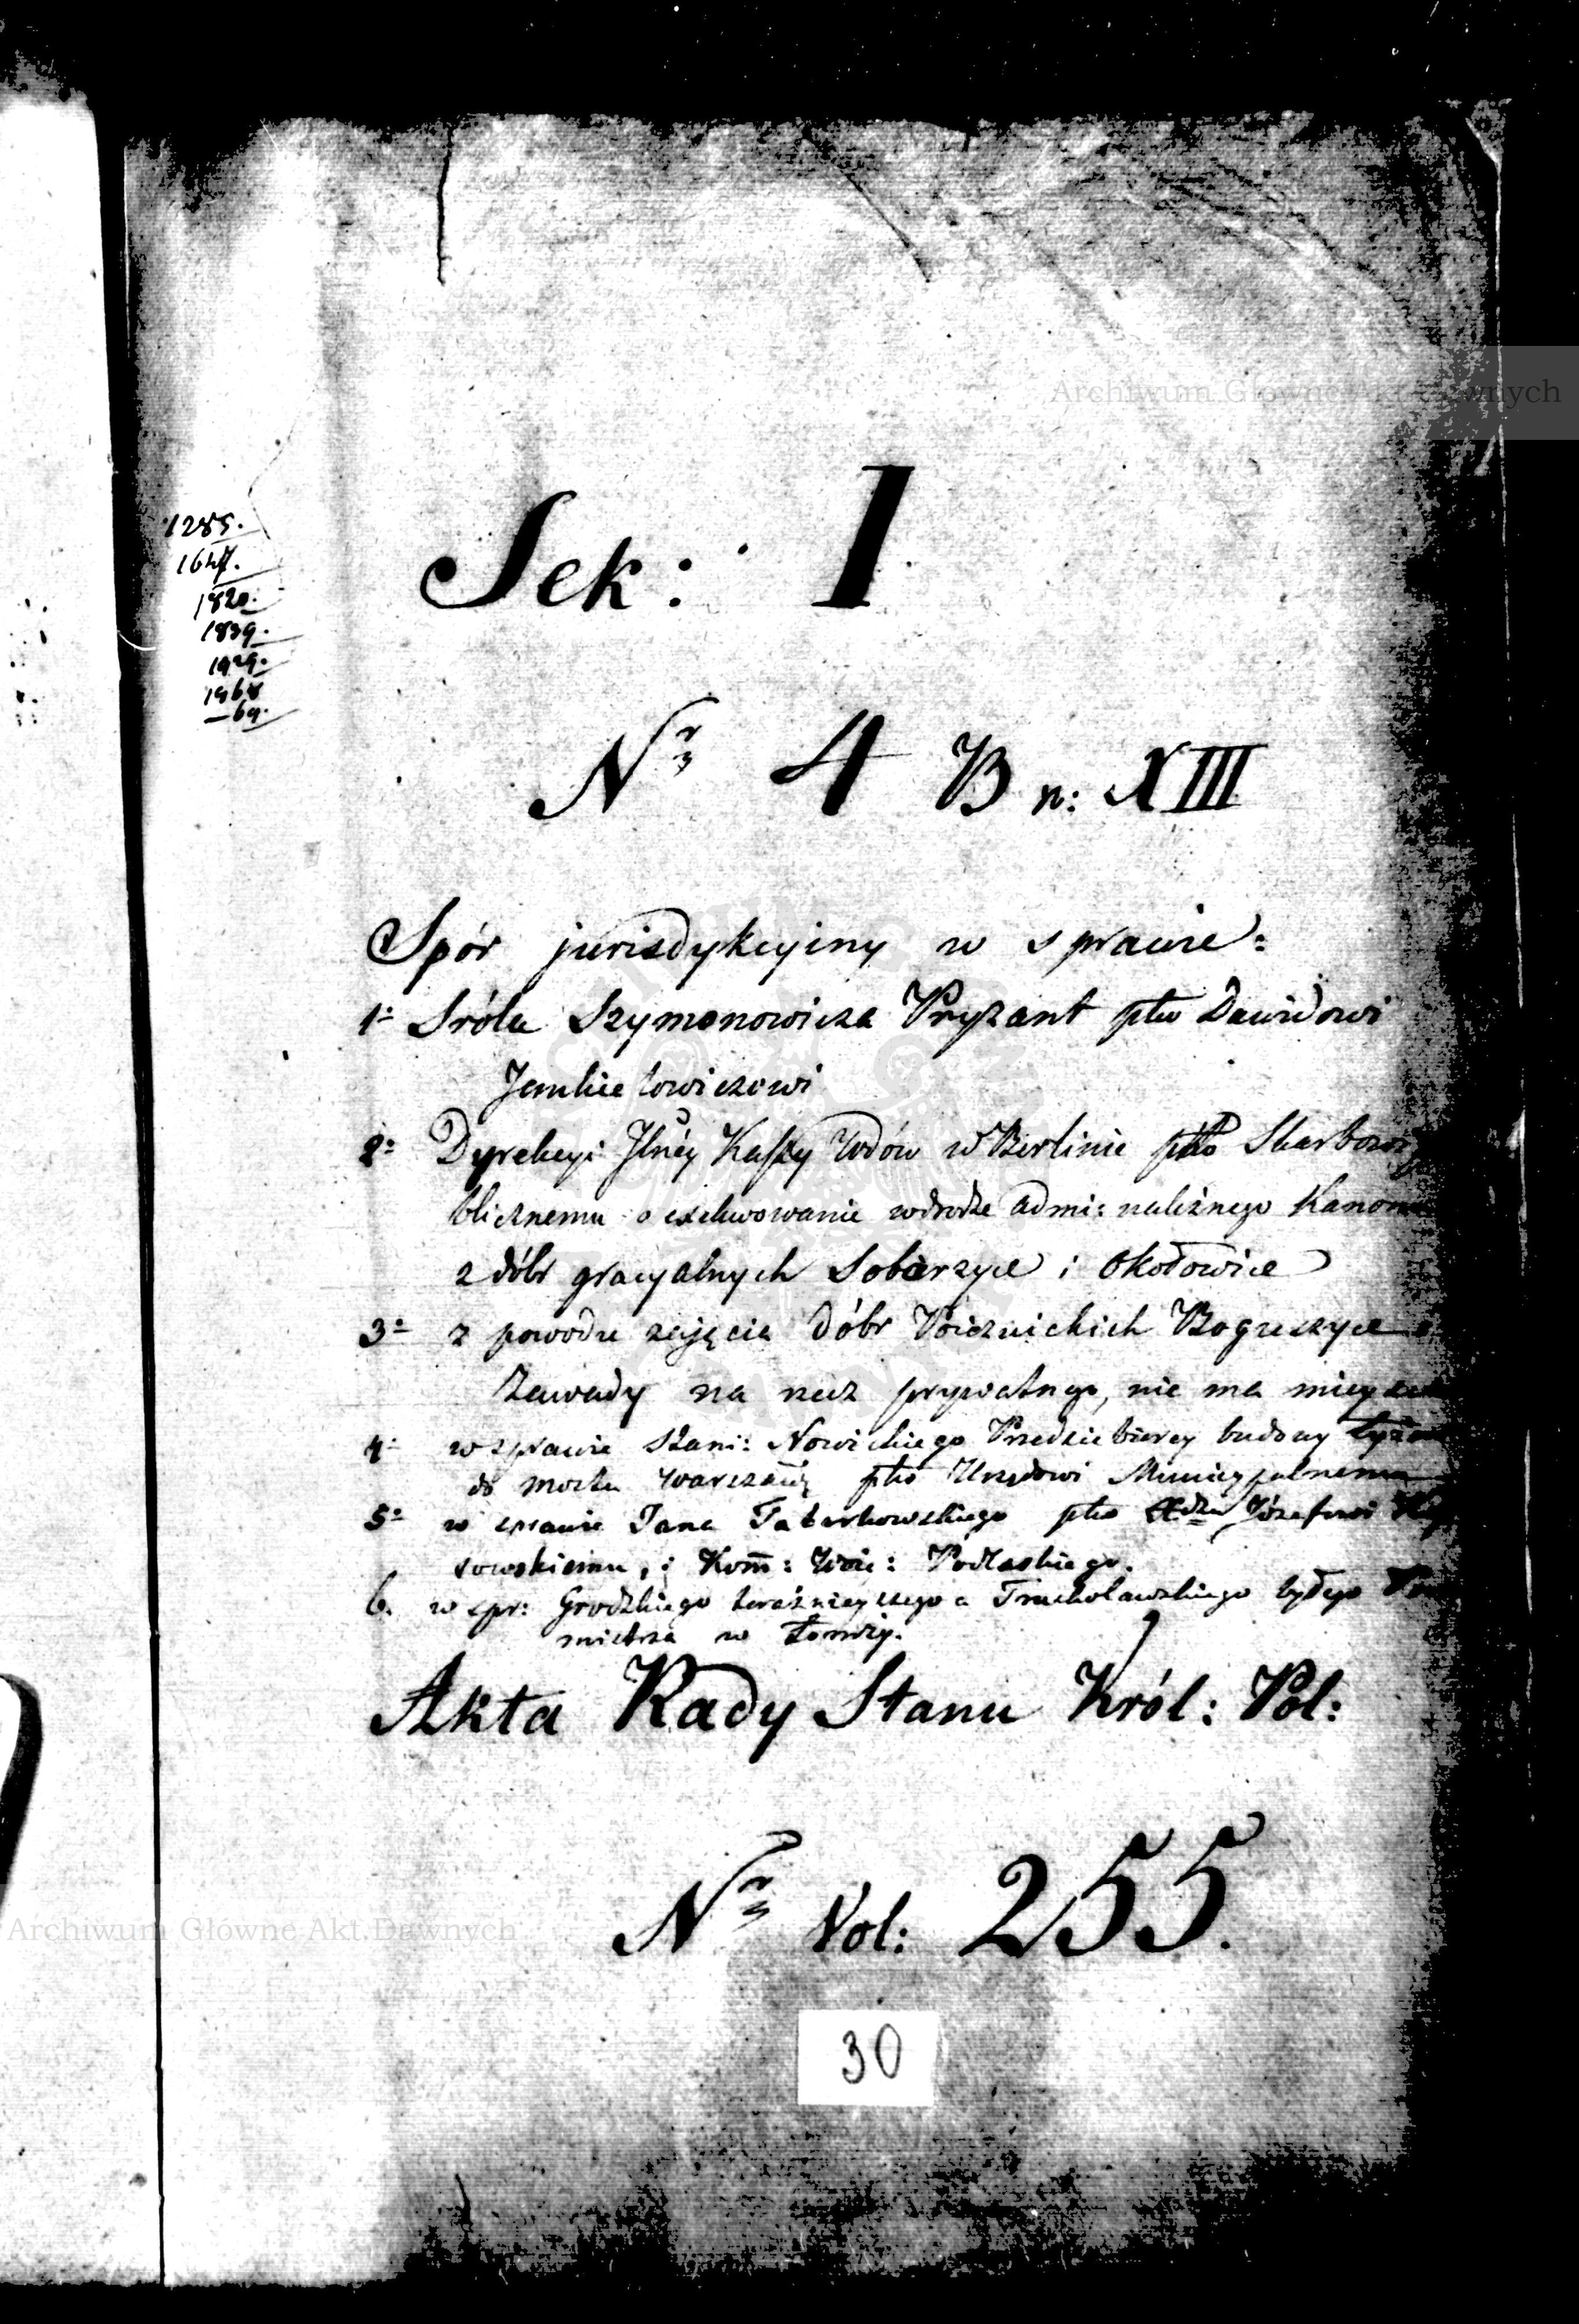 Archiwum Główne Akt Dawnych
1285.
1647.
1820.
1839.
1929.
1968
—69.
Sek: 1
Nr 4 B n: XIII
Spór jurisdykcyiny w sprawie:
1º Sróla Szymonowicza Pryzant ptko Dawidowi
Jankielowiczowi
2º Dyrekcyi Kassy Wdów w Berlinie ptko Skarbowi
blicznemu o exekwowanie wdrodze admi: należnego Kanonu
z dóbr gracyalnych Soberzyce i Okołowice
3º z powodu zajęcia dóbr Boguszyce
Zawady na rzecz prywatnego, nie ma mieysca
4º w sprawie Stani: Nowickiego Przedsiebiercy budowy
do mostu Warszaw: ptko Urzędowi Municypalnemu
5º w sprawie Jana Taberkowskiego ptko Józefowi
sowskiemu, i Kom: Woie: Podlaskiego.
6. w spr: Grodzkiego teraźnieyszego a byłego
mistrza w Łomży.
Akta Rady Stanu Król: Pol:
Nr Vol: 255.
30
Archiwum Główne Akt Dawnych